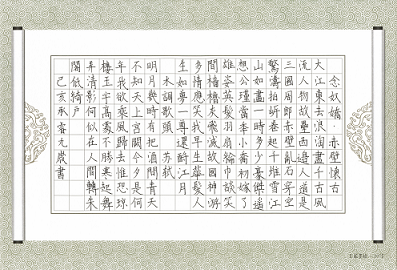 念奴嬌·赤壁懷古
大江東去浪淘盡千古風
流人物故壘西邊人道是
三國周郎赤壁亂石穿空
驚濤拍岸卷起千堆雪江
山如畫一時多少豪傑遙
想公瑾當年小喬初嫁了
雄姿英發羽扇綸巾談笑
間檣櫓灰飛滅故國神游
多情應笑我早生華髮人
生如夢一尊還酹江月
水調歌頭 蘇軾
明月幾時有把酒問青天
不知天上宮闕今夕是何
年我欲乘風歸去惟恐瓊
樓玉宇高處不勝寒起舞
弄清影何似在人間轉朱
閣低綺戶
己亥承齋元歲書